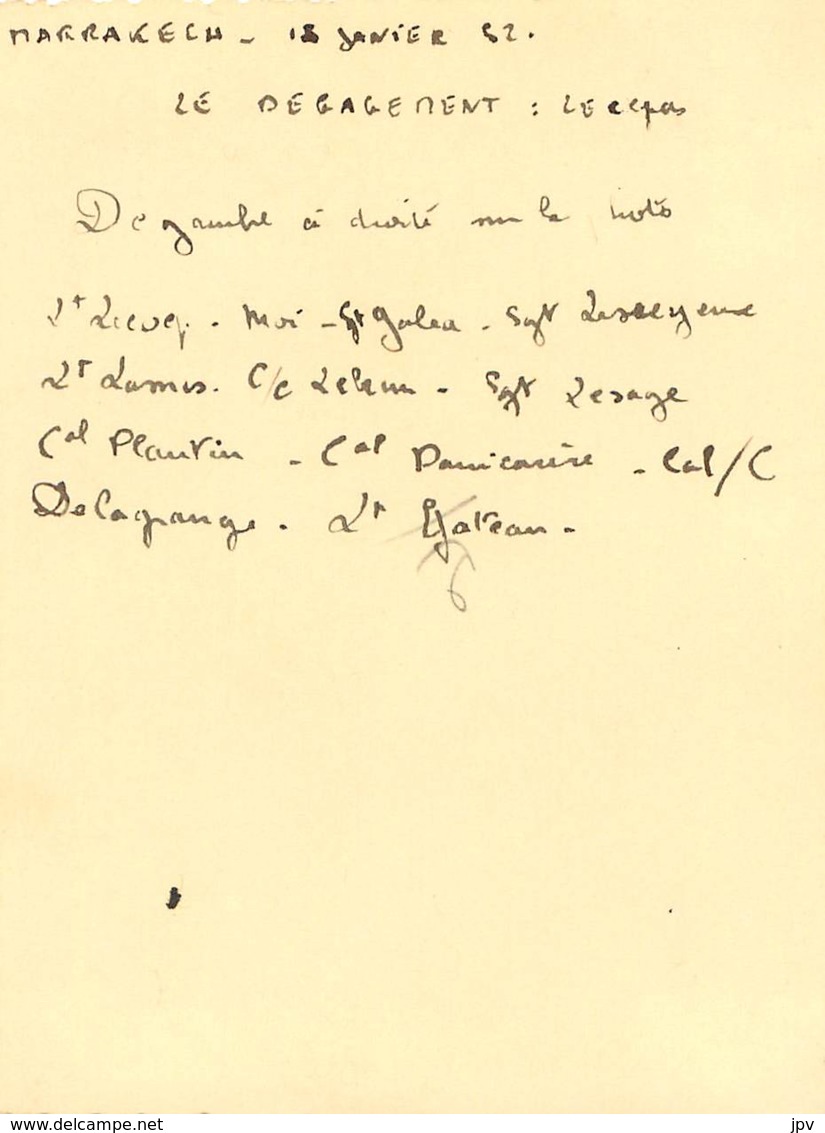 MARRAKECH - 18 JANVIER 52.
LE DEGAGEMENT : LE repas
De gauche à droite sur la photo
Lt Lecocq. Moi - Sgt Galea - Sgt
Lt Lamis. C/C - Sgt Lesage
Cal Plantin - Cal - Cal/C
Delagrange. Lt Gateau -
www.delcampe.net
jpv